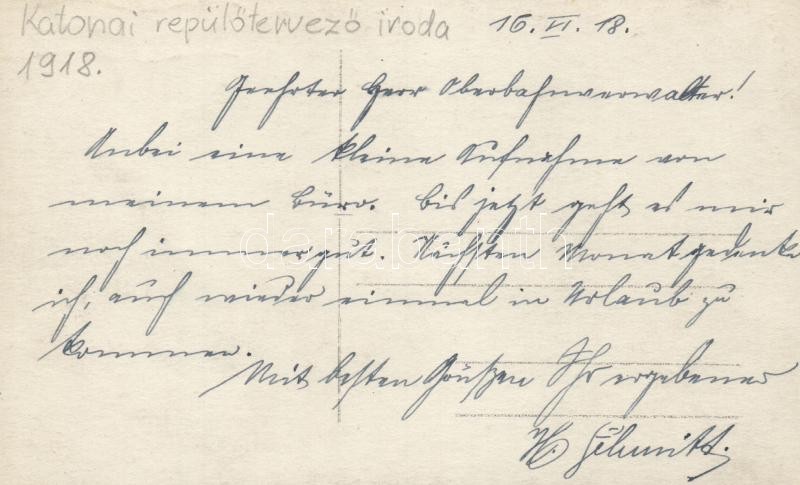 Katonai repülőtervező iroda 16. VI. 18.
1918.
Geehrter Herr Oberbahnverwalter!
Anbei eine kleine Aufnahme von
meinem Büro. Bis jetzt geht es mir
noch immer gut. Nächsten Monat gedenke
ich, auch wieder einmal in Urlaub zu
kommen.
Mit besten Grüßen Ihr ergebener
H. Schmitt.
darabanth